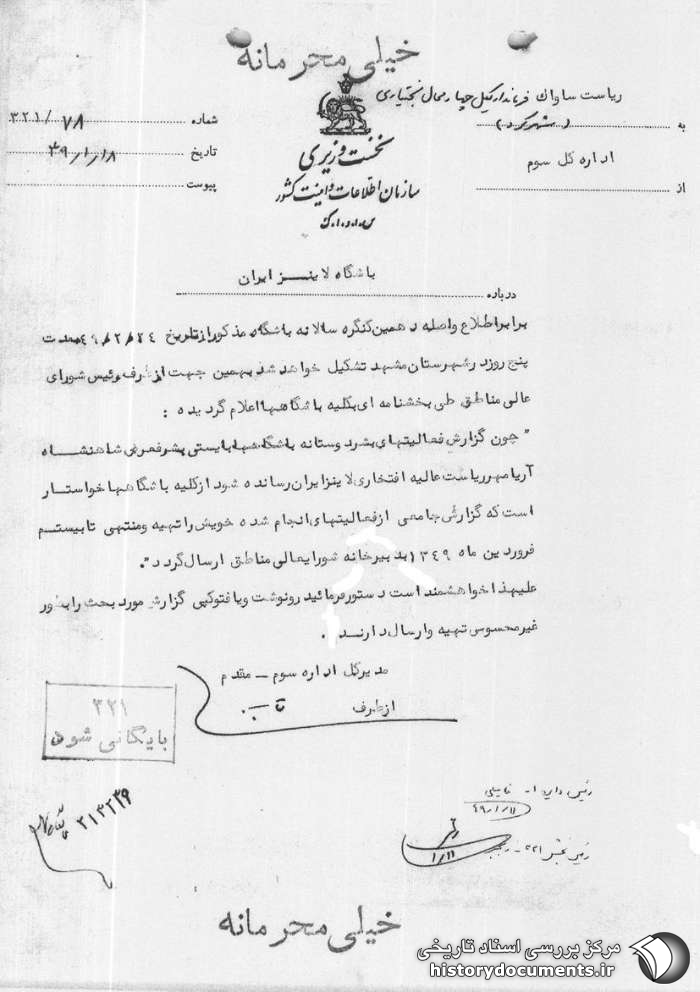 خیلی محرمانه
به ریاست ساواک فرماندار کل چهارمحال بختیاری
(شهرکرد)
از اداره کل سوم
نخست وزیری
سازمان اطلاعات و امنیت کشور
س.ا.و.ا.ک
شماره ۳۲۱/۷۸
تاریخ
پیوست
درباره باشگاه لاینز ایران
برابر اطلاع واصله دهمین کنگره سالانه باشگاه مذکور از تاریخ ۴۹٫۲٫۲۴ بمدت
پنج روز در شهرستان مشهد تشکیل خواهد شد بهمین جهت از طرف رئیس شورای
عالی مناطق طی بخشنامه ای بکلیه باشگاهها اعلام گردیده :
" چون گزارش فعالیتهای بشردوستانه باشگاهها بایستی بشرفعرض شاهنشاه
آریامهر ریاست عالیه افتخاری لاینز ایران رسانده شود از کلیه باشگاهها خواستار
است که گزارش جامعی از فعالیتهای انجام شده خویش را تهیه و منتهی تا بیستم
فروردین ماه ۱۳۴۹ بدبیرخانه شورایعالی مناطق ارسال گردد ".
علیهذا خواهشمند است دستور فرمائید رونوشت و یا فتوکپی گزارش مورد بحث را بطور
غیر محسوس تهیه و ارسال دارند .
مدیرکل اداره سوم ــ مقدم
از طرف
۳۲۱
بایگانی شود
رئیس دایره ۱-
۴۹/۱/۱۱
رئیس بخش ۳۲۱ -
۱/۱۱
۳۱۳۲۳۹
خیلی محرمانه
مرکز بررسی اسناد تاریخی
historydocuments.ir